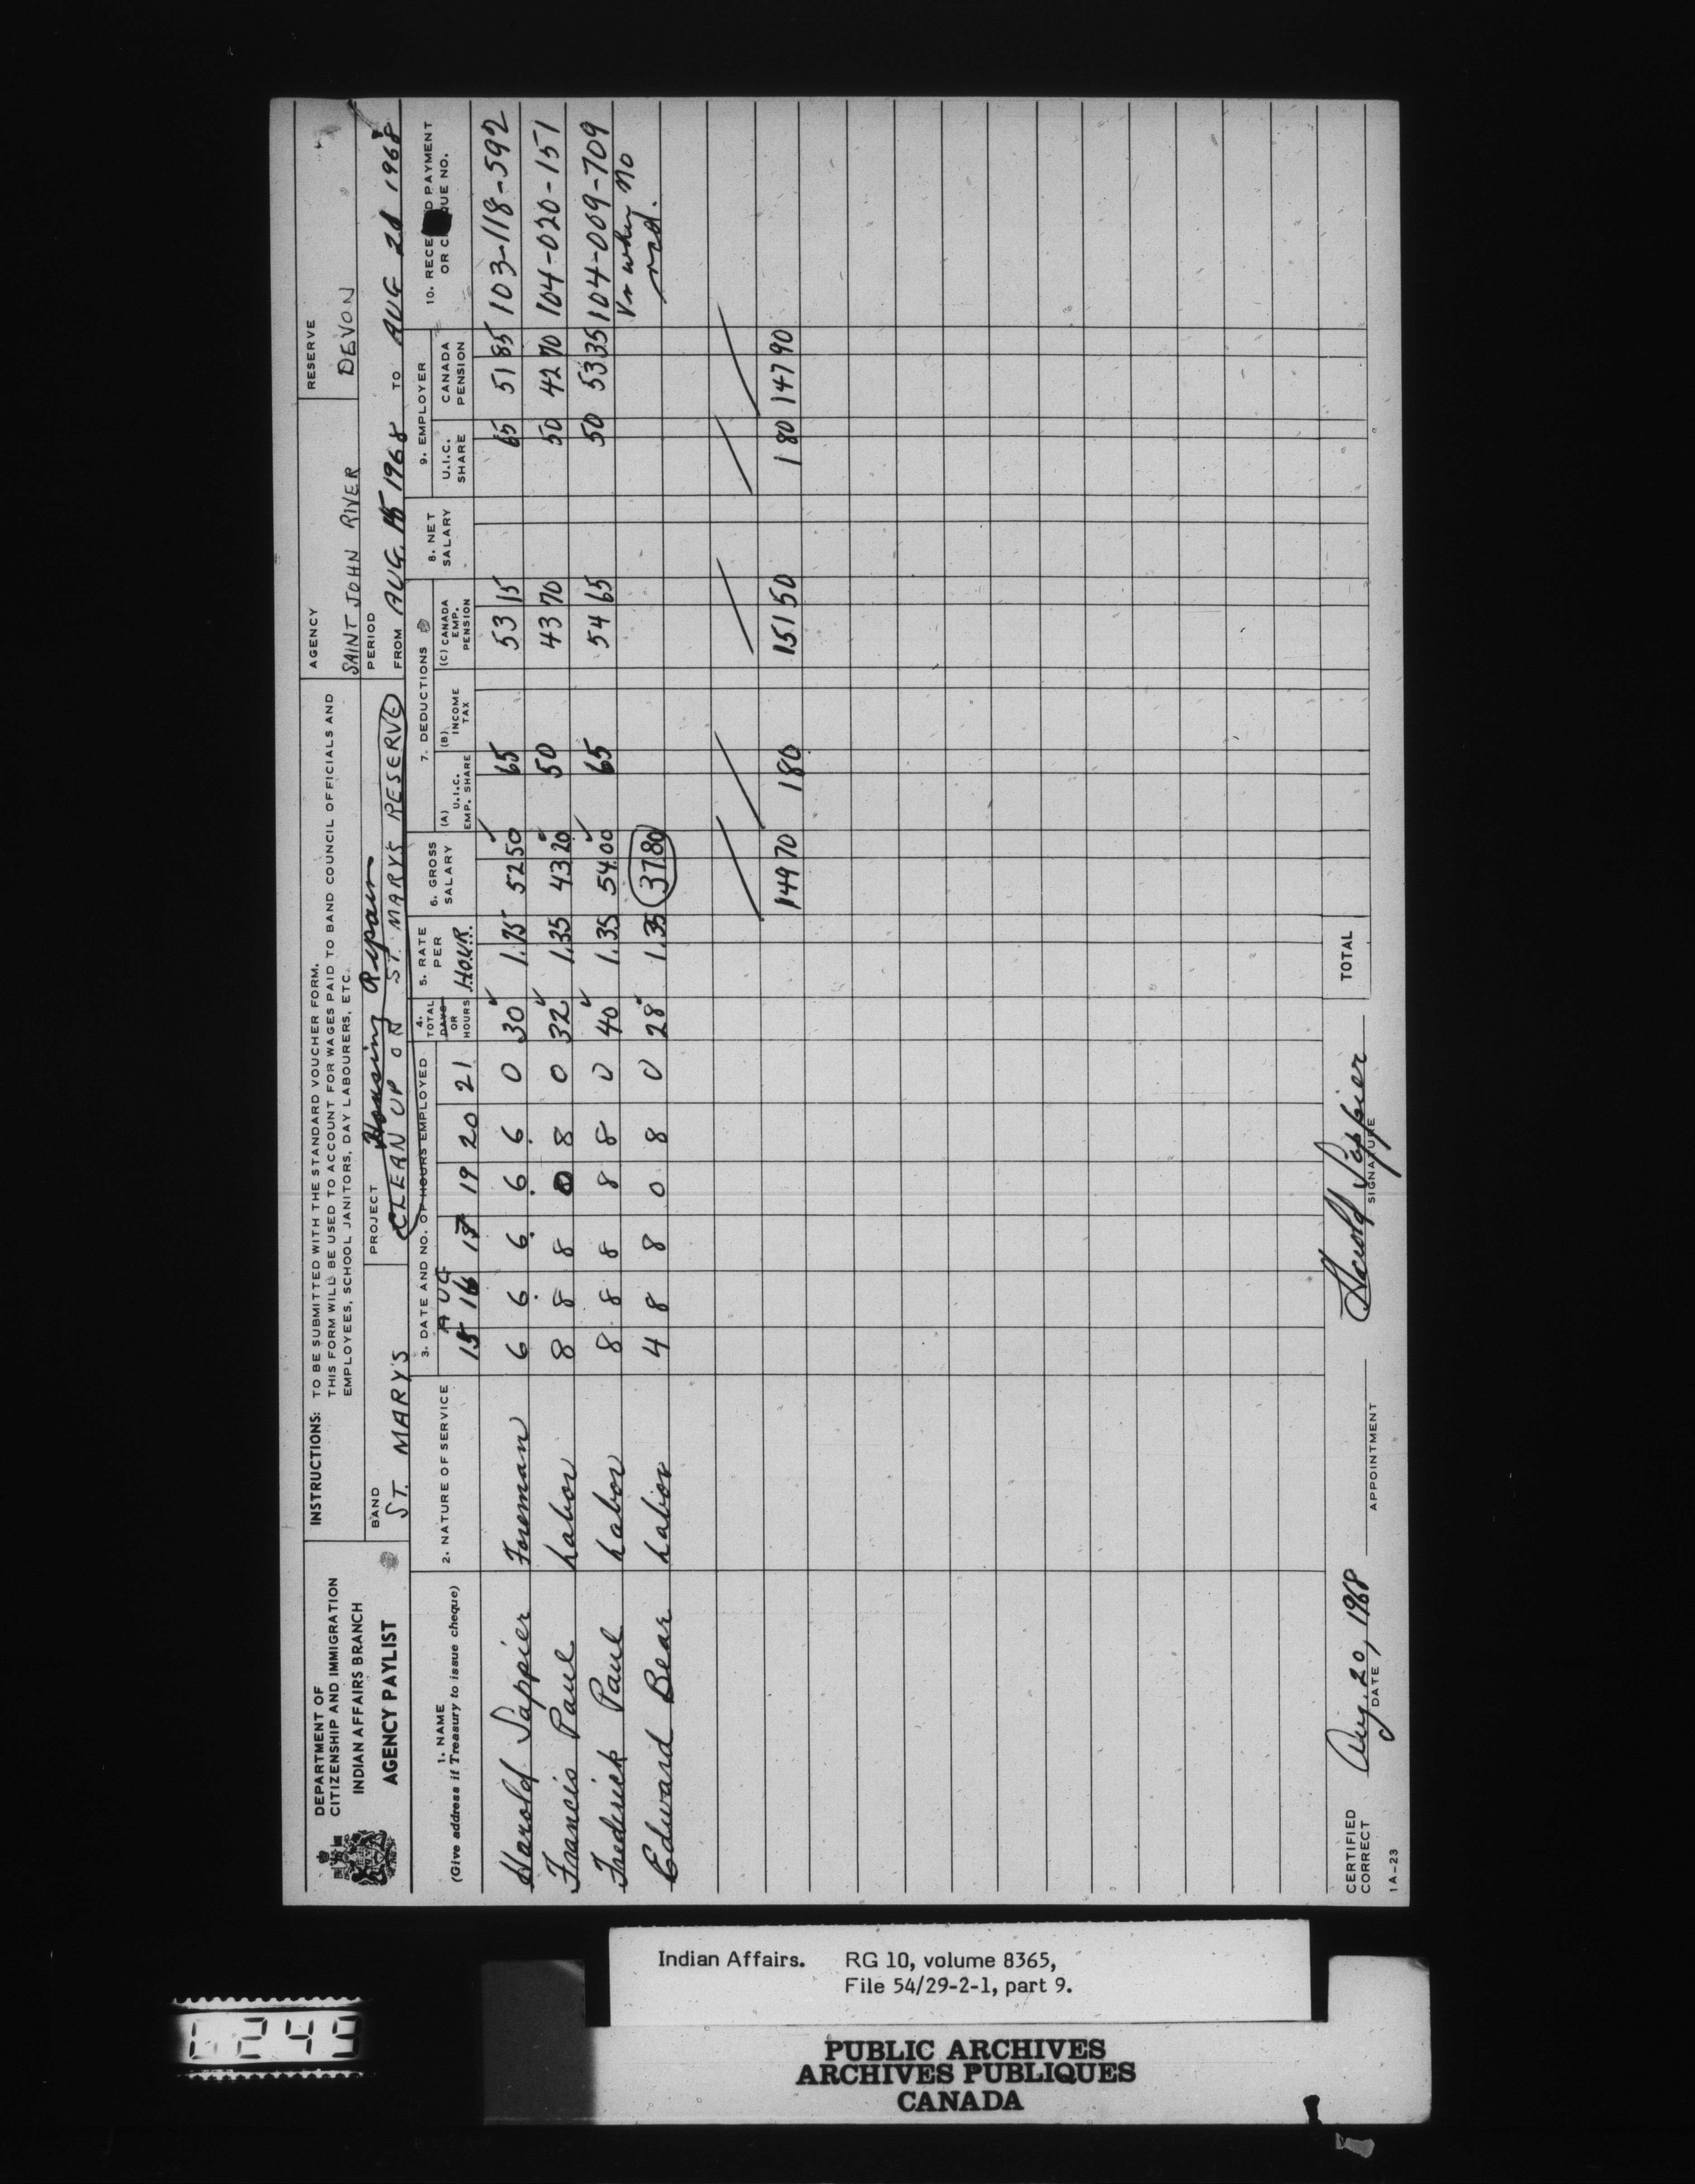 DEPARTMENT OF
CITIZENSHIP AND IMMIGRATION
INDIAN AFFAIRS BRANCH
AGENCY PAYLIST
INSTRUCTIONS: TO BE SUBMITTED WITH THE STANDARD VOUCHER FORM.
THIS FORM WILL BE USED TO ACCOUNT FOR WAGES PAID TO BAND COUNCIL OFFICIALS AND
EMPLOYEES, SCHOOL JANITORS, DAY LABOURERS, ETC.
AGENCY
SAINT JOHN RIVER
RESERVE
DEVON
BAND
ST. MARY'S
PROJECT
Housing Repair
CLEAN UP ON ST. MARY'S RESERVE
PERIOD
FROM AUG. 15 1968 TO AUG 21 1968
1. NAME
(Give address if Treasury to issue cheque)
2. NATURE OF SERVICE
3. DATE AND NO. OF HOURS EMPLOYED
AUG
15 16 18 19 20 21
4. TOTAL DAYS OR HOURS
5. RATE PER HOUR.
6. GROSS SALARY
7. DEDUCTIONS
(A) U.I.C. EMP. SHARE
(B) INCOME TAX
(C) CANADA EMP. PENSION
8. NET SALARY
9. EMPLOYER
U.I.C. SHARE
CANADA PENSION
10. RECE D PAYMENT
OR C QUE NO.
Harold Sappier Foreman 6 6 6 6 6 0 30 1.75 52 50 65 53 15 65 51 85 103-118-592
Francis Paul Labor 8 8 8 0 8 0 32 1.35 43 20 50 43 70 50 42 70 104-020-151
Frederick Paul Labor 8 8 8 8 8 0 40 1.35 54.00 65 54 65 50 53 35 104-009-709
Edward Bear Labor 4 8 8 0 8 0 28 1.35 37.80 when no
rcd.
149 70 1 80 151 50 1 80 147 90
TOTAL
CERTIFIED
CORRECT
Aug. 20, 1968
DATE
APPOINTMENT
Harold Sappier
SIGNATURE
1A-23
Indian Affairs. RG 10, volume 8365,
File 54/29-2-1, part 9.
PUBLIC ARCHIVES
ARCHIVES PUBLIQUES
CANADA